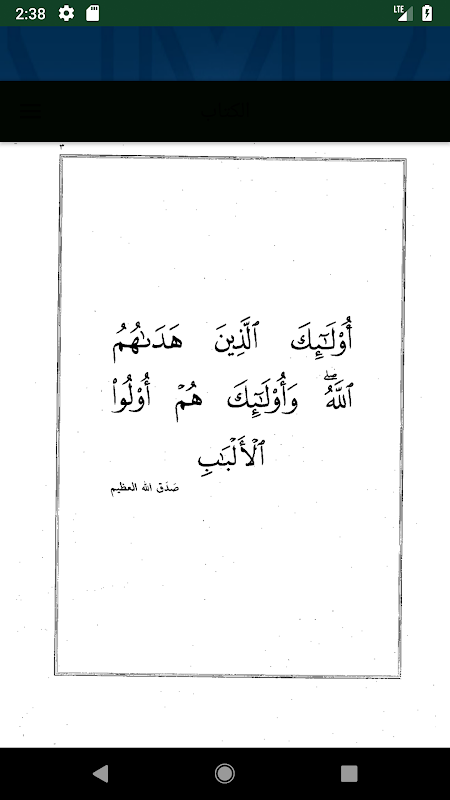 2:38
LTE
٣
أُوْلَٰٓئِكَ ٱلَّذِينَ هَدَىٰهُمُ
ٱللَّهُۖ وَأُوْلَٰٓئِكَ هُمۡ أُوْلُواْ
ٱلۡأَلۡبَٰبِ
صَدَق الله العظيم